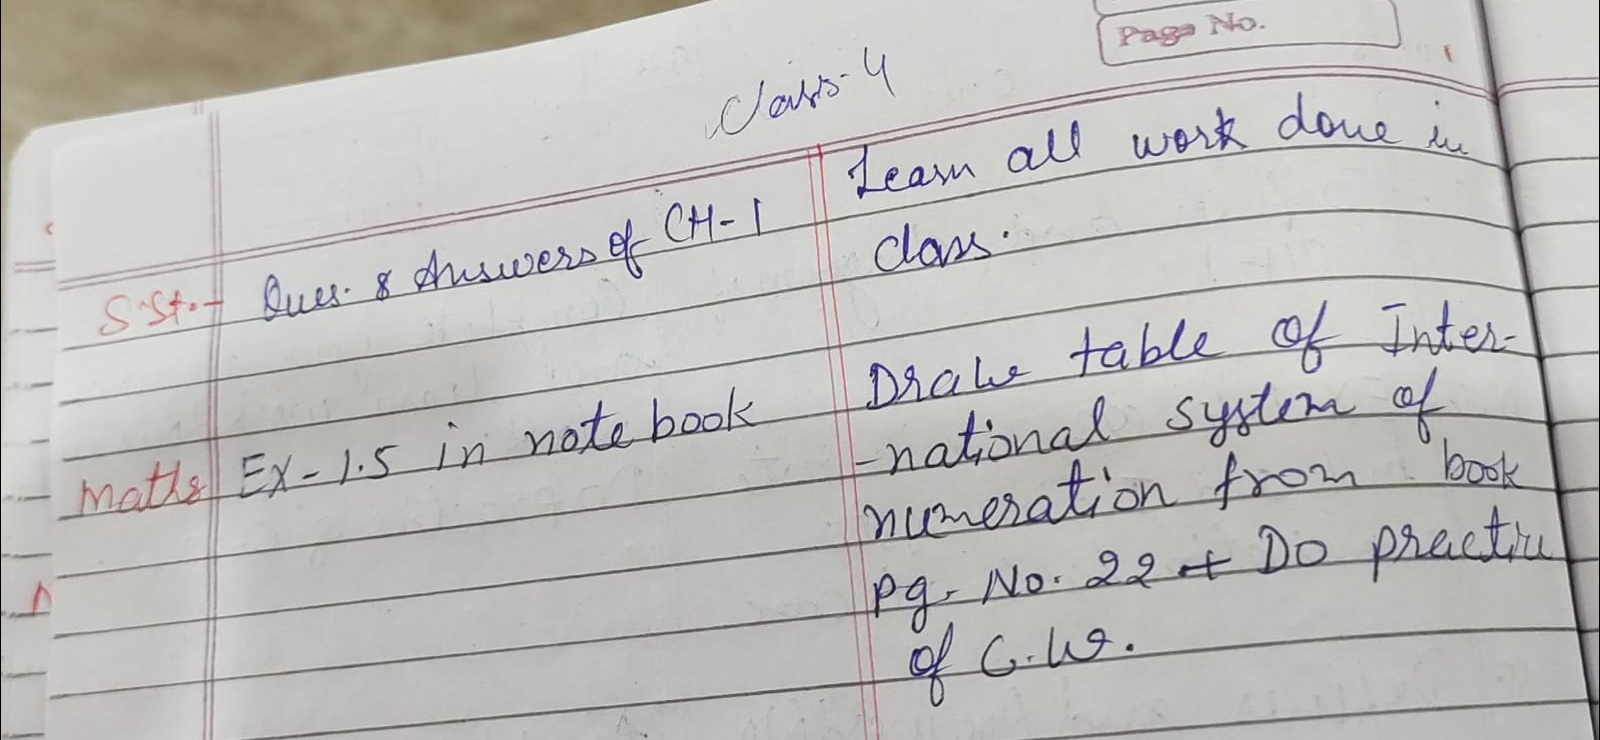 Page No.
Class-4
S.St.- Ques. & Answers of CH-1
Learn all work done in
class.
Maths Ex-1.5 in note book
Draw table of Inter-
-national system of
numeration from book
pg. No. 22 + Do practice
of C.W.